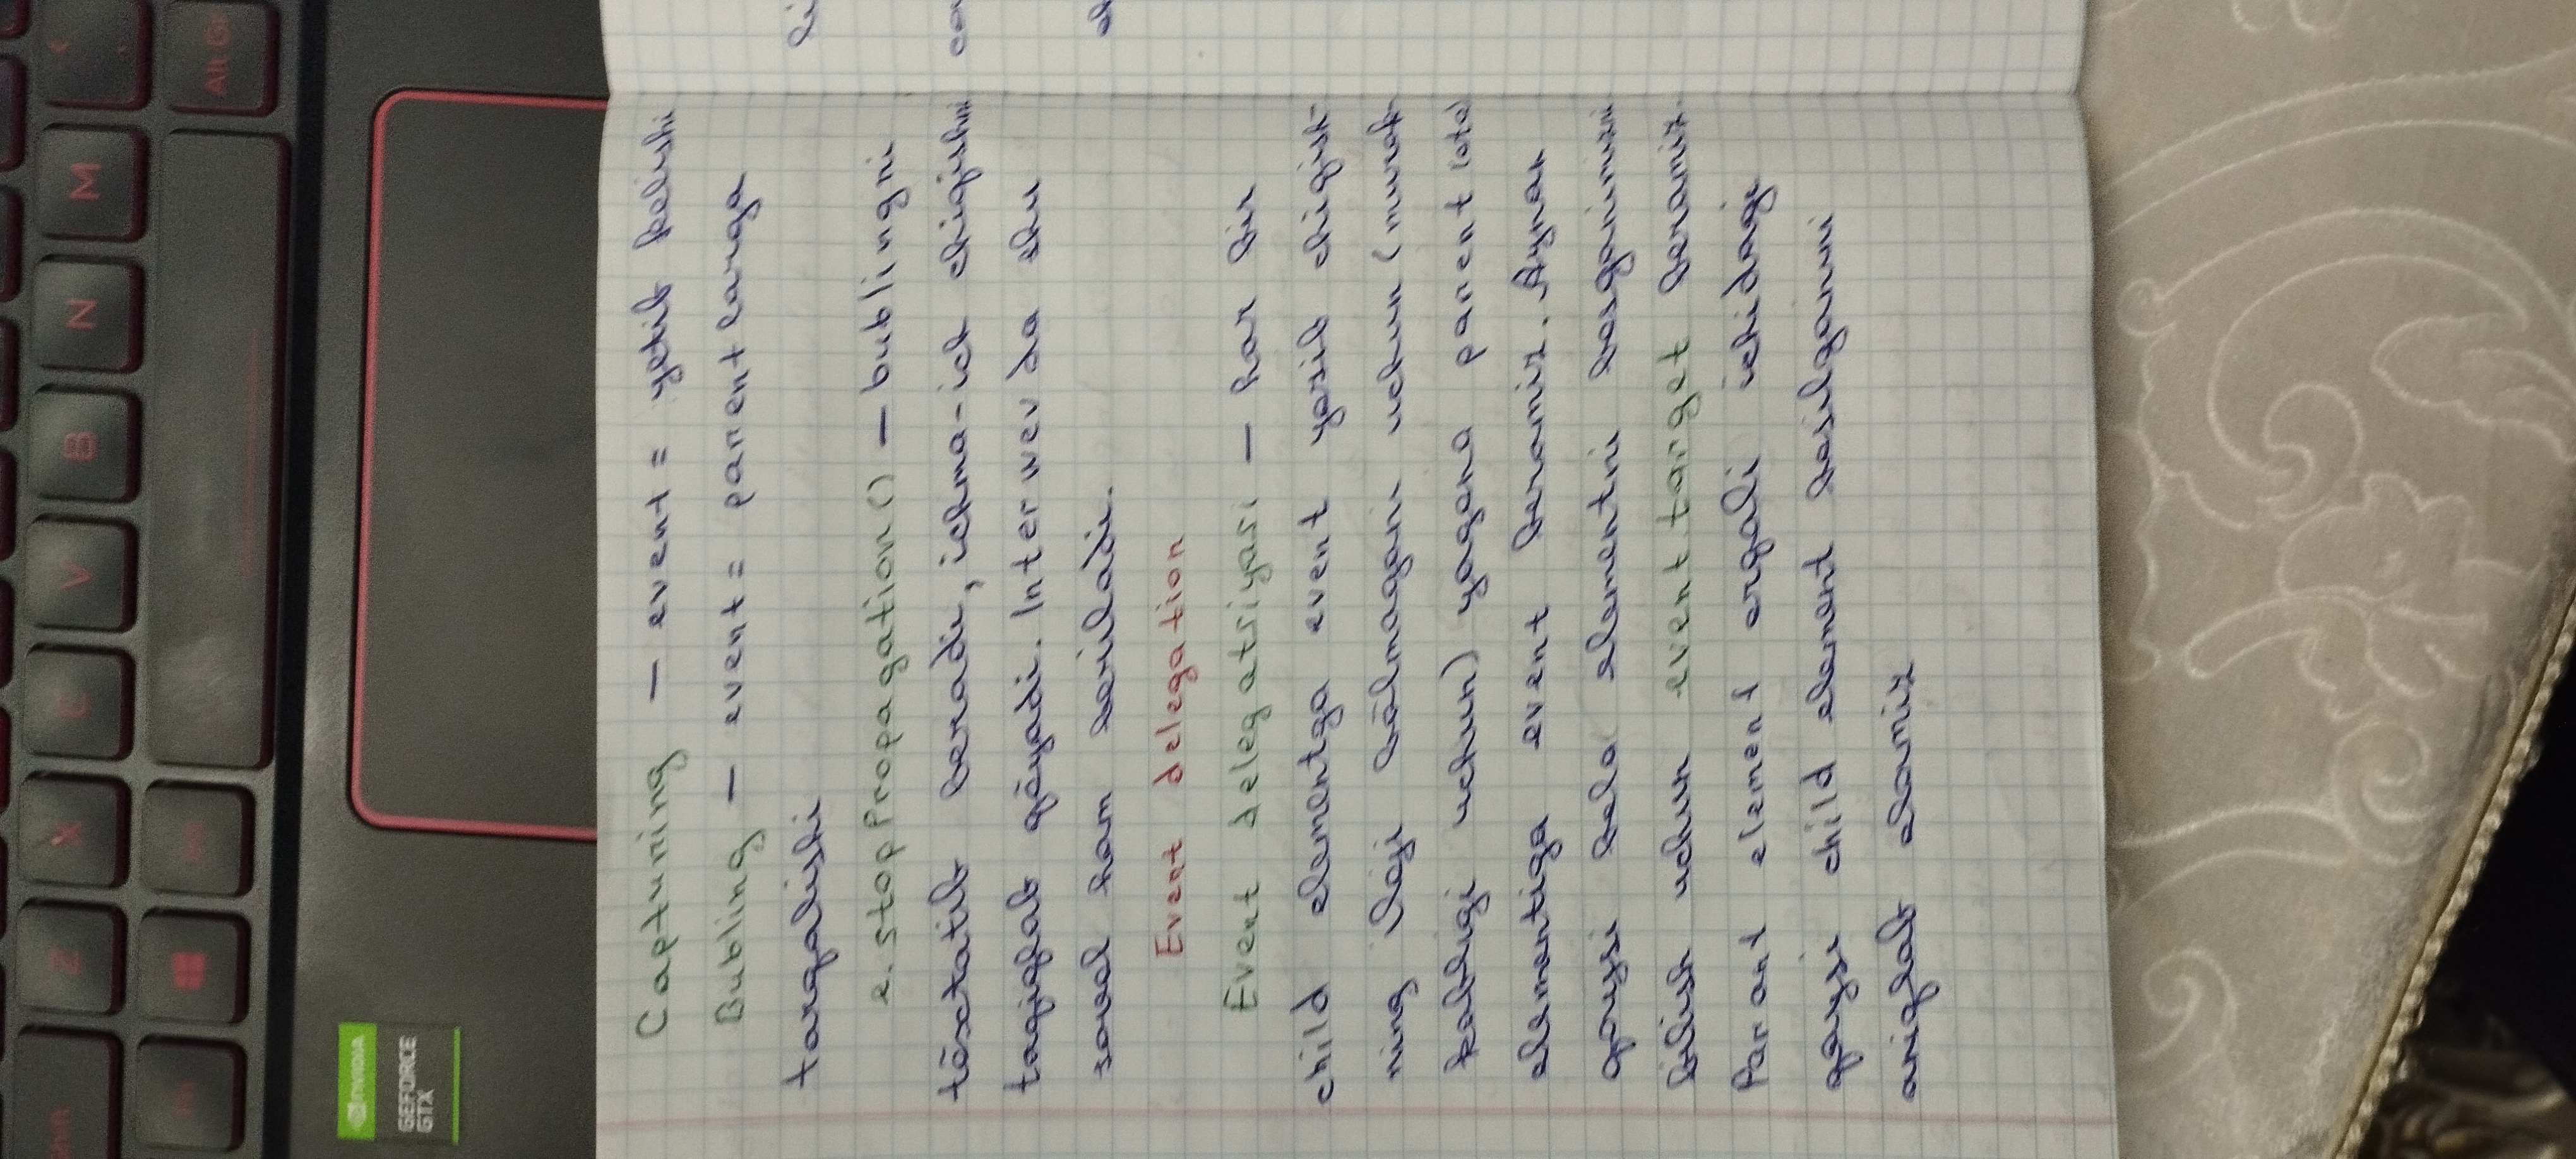 Capturing — event = yetib kelishi
Bubling — event = parentlarga
tarqalishi
e.stopPropagation() — bublingni
tõxtatib beradi, ichma-ich chiqishni
taqiqlab qõyadi. Interwevda shu
savol ham beriladi.
Event delegation
Event delegatsiyasi — har bir
child elementga event yozib chiqish-
ning iloji bõlmagani uchun (murak-
kabligi uchun) yagona parent (ota)
elementiga event beramiz. Aynan
qaysi bola elementni bosganimizni
bilish uchun event.target beramiz.
Parant element orqali ichidagi
qaysi child element bosilganini
aniqlab olamiz
M
N
B
V
C
X
Z
Alt Gr
NVIDIA
GEFORCE
GTX